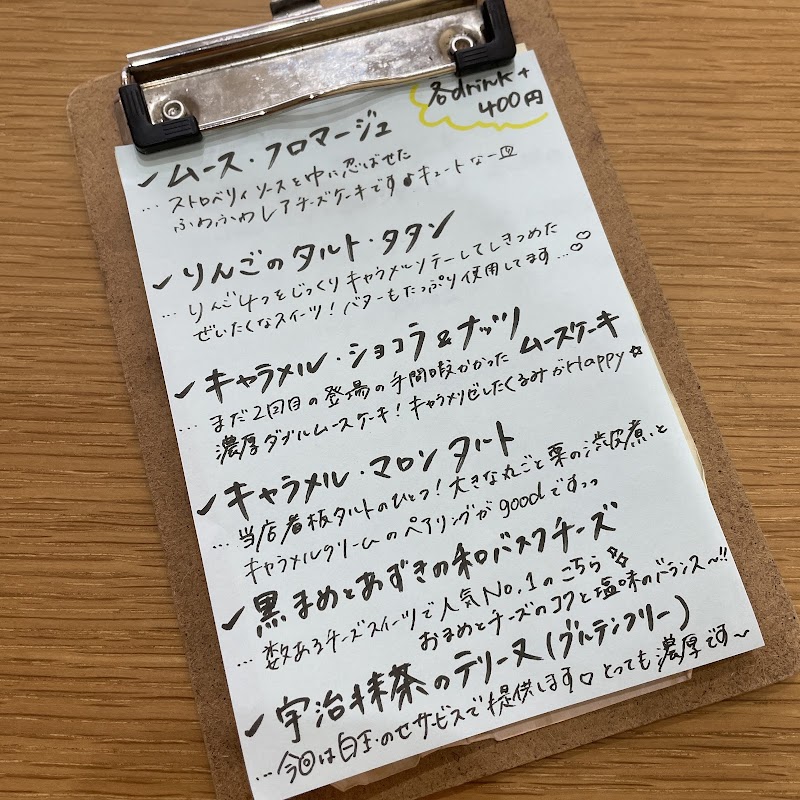 各drink+
400円
✓ムース・フロマージュ
…ストロベリィソースを中に忍ばせた
ふわふわレアチーズケーキです♪キュートな一皿
✓りんごのタルト・タタン
…りんご4つをじっくりキャラメルソテーしてしきつめた
ぜいたくなスイーツ！バターもたっぷり使用してます…♡
✓キャラメル・ショコラ&ナッツ
ムースケーキ
…まだ2回目の登場の手間暇かかった
濃厚ダブルムースケーキ！キャラメリゼしたくるみがHappy☆
✓キャラメル・マロンタルト
…当店看板タルトのひとつ！大きな丸ごと栗の渋皮煮と
キャラメルクリームのペアリングがgoodですっっ
✓黒まめとあずきの和バスクチーズ
…数あるチーズスイーツで人気No.1のこちら☆
おまめとチーズのコクと塩味のバランス〜!!
✓宇治抹茶のテリーヌ(グルテンフリー)
…今回は白玉のせサービスで提供します♡とっても濃厚です〜